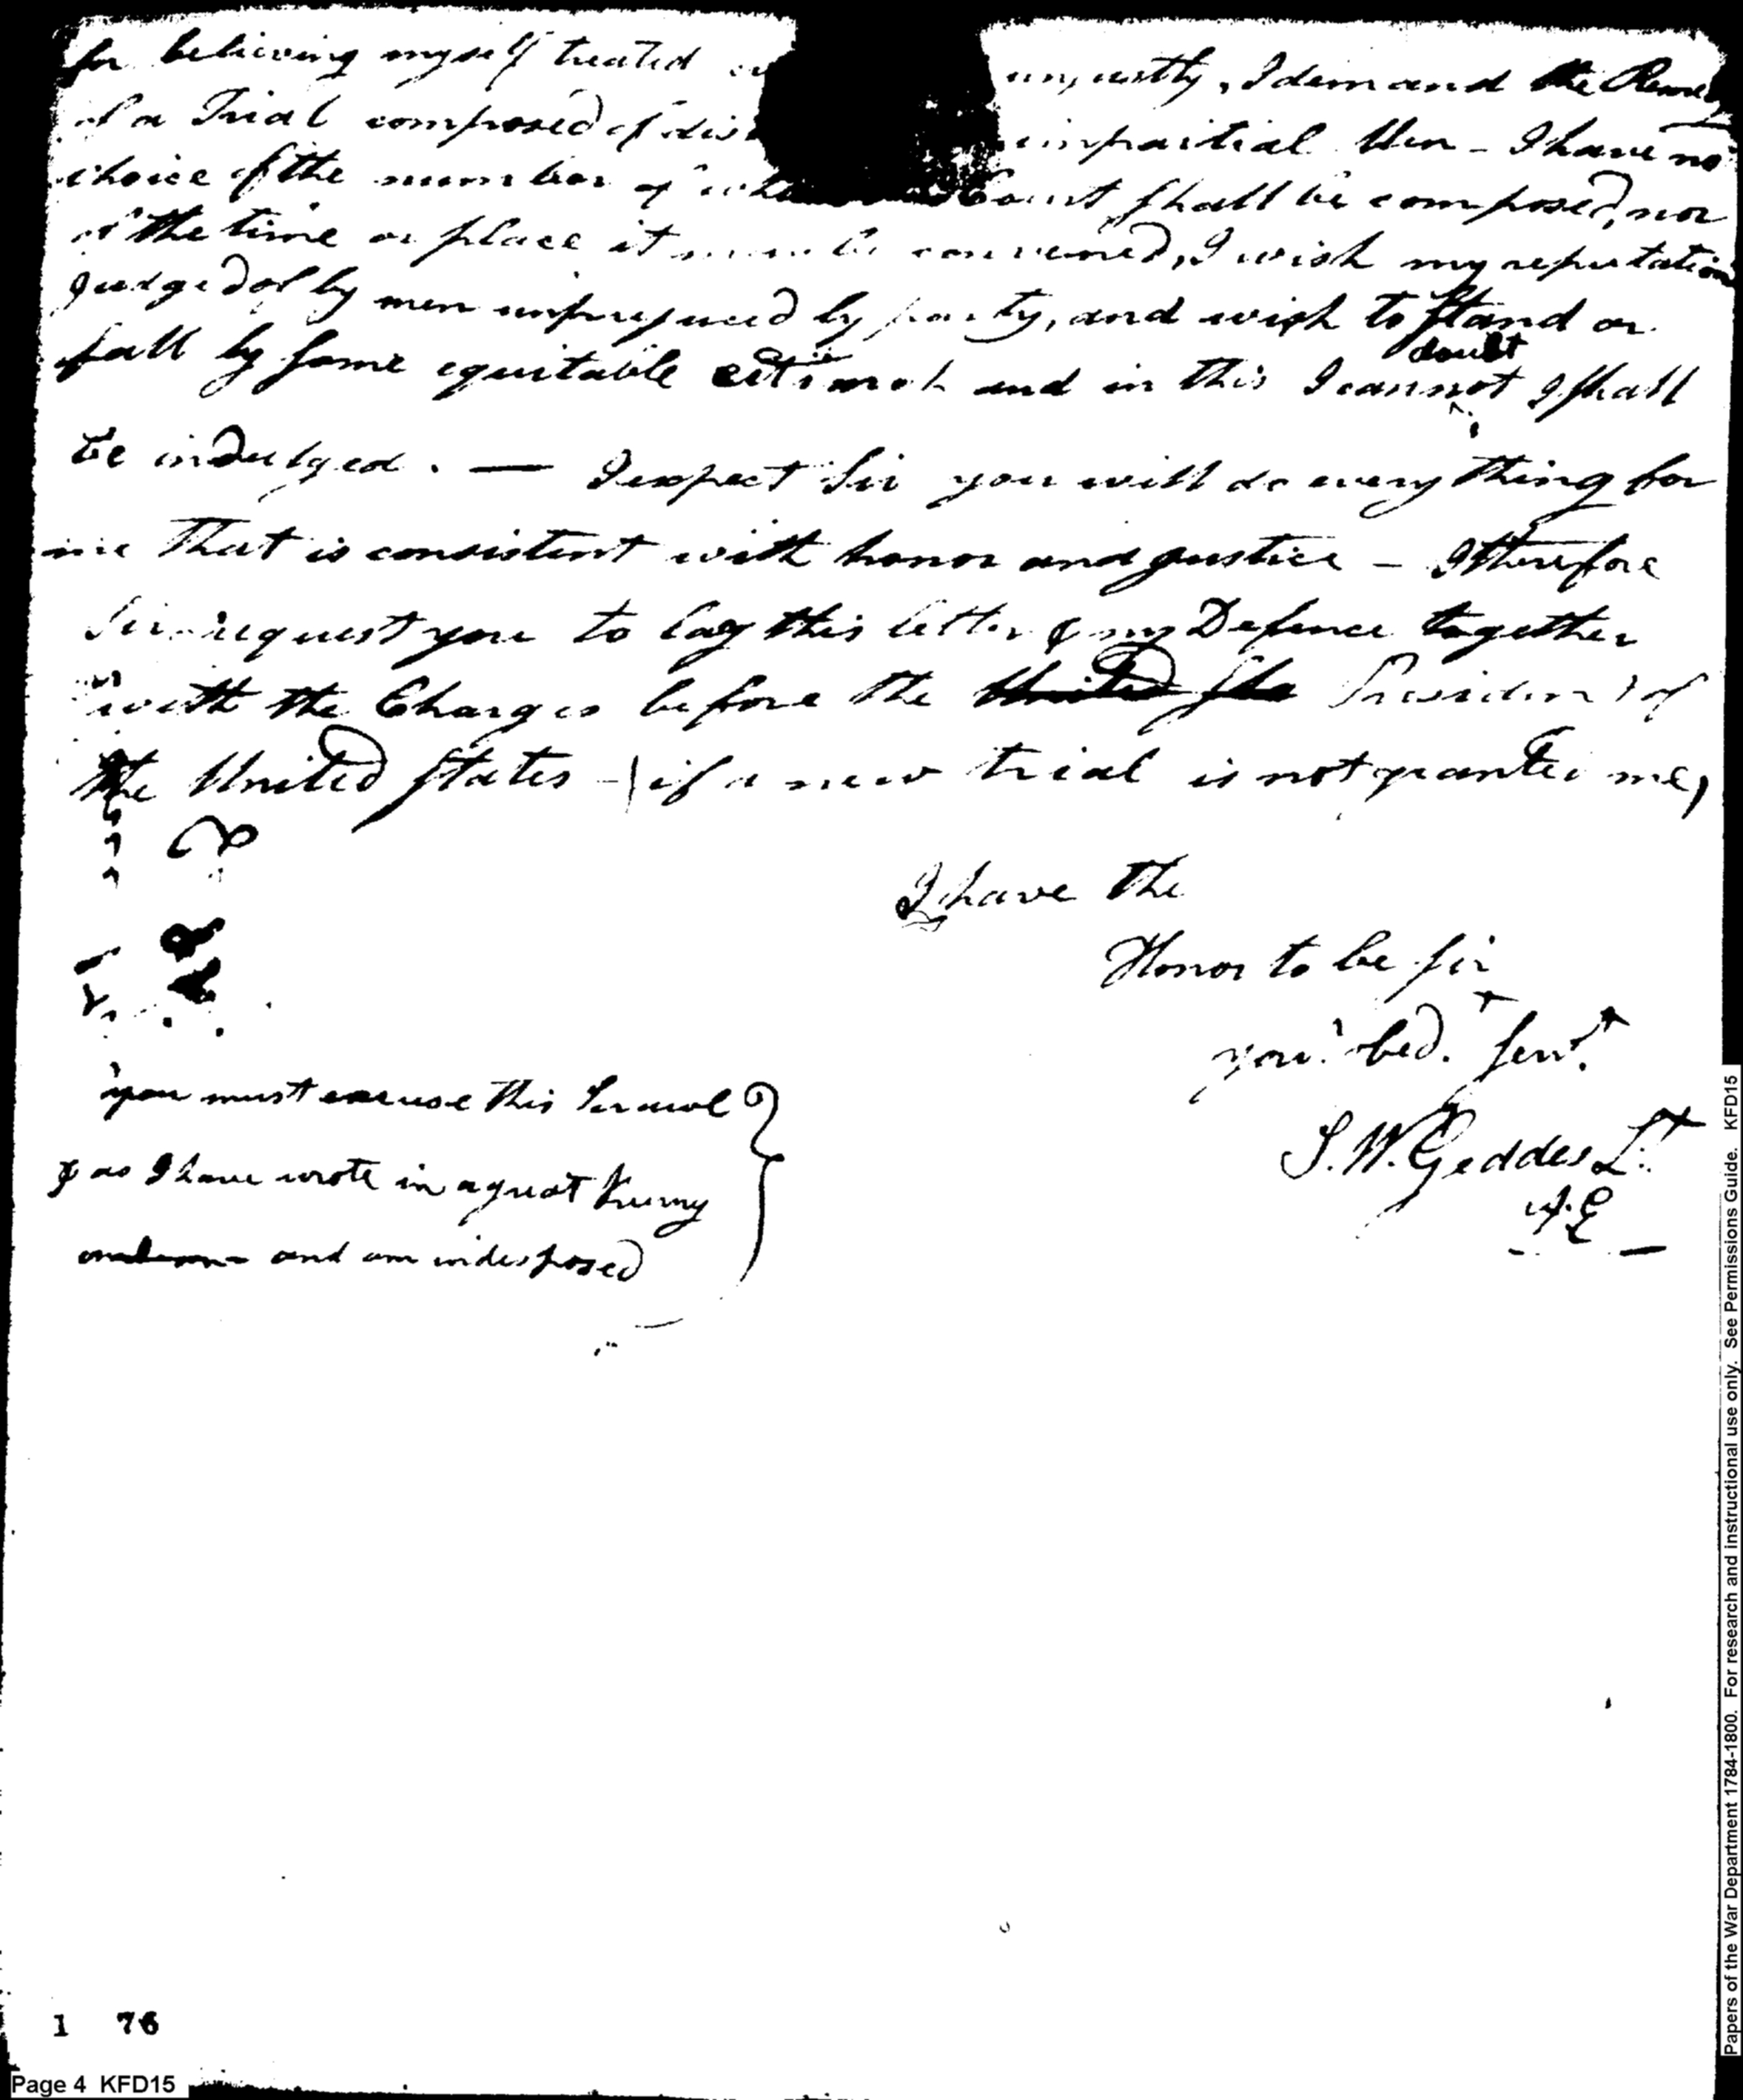 for believing myself treated unjustly, I demand the
of a Trial composed of impartial Men - I have no
choice of the number of Court shall be composed, nor
of the time or place it may be convened, I wish my reputation
judged of by men unprejuced by party, and wish to stand or
fall by some equitable and in this I cannot doubt I shall
be indulged. — I expect Sir you will do every thing for
me that is consistent with honor and justice - I therefore
Sir request you to lay this letter & my Defence together
with the Charges before the United Sta President of
the United States - (if a new trial is not granted me)
I have the
Honor to be Sir
your obed.t Serv.t
S. W. Geddes L.t
you must excuse this Scrawl
& as I have wrote in a great hurry
and am indesposed
1 76
Page 4 KFD15
Papers of the War Department 1784-1800. For research and instructional use only. See Permissions Guide. KFD15